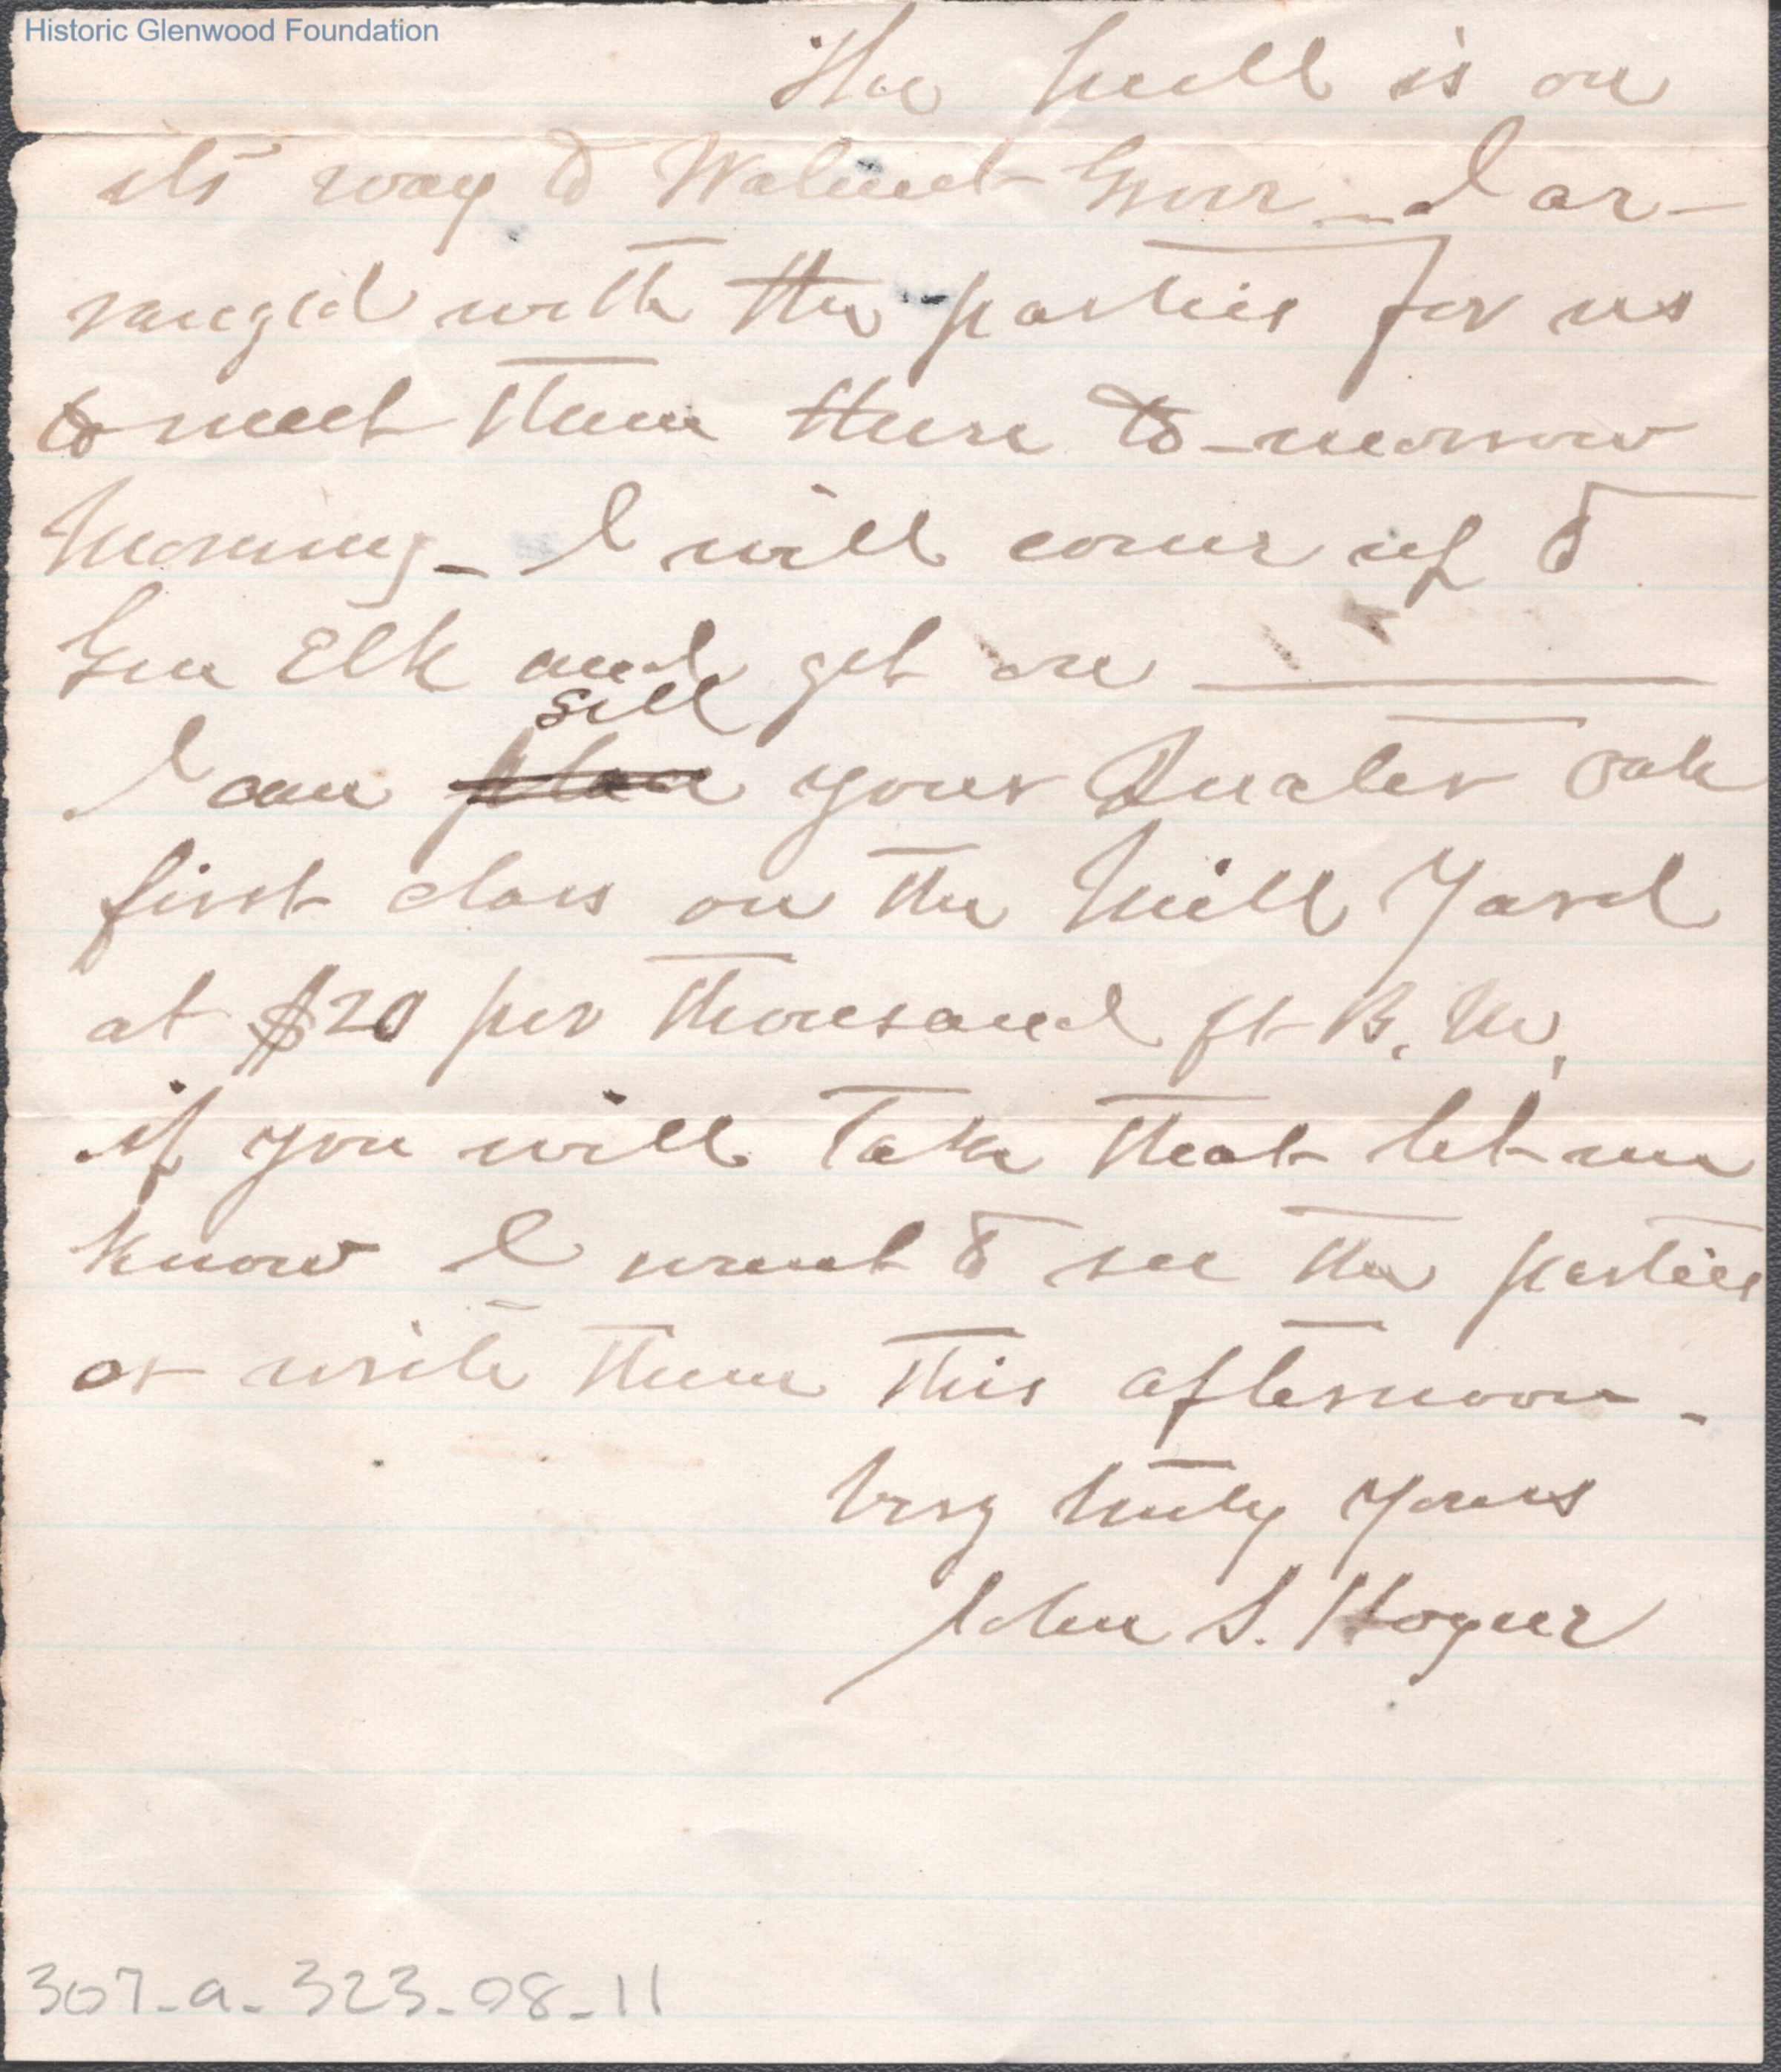 Historic Glenwood Foundation
The Mill is on
its way to Walnut Grove _ I ar-
ranged with the parties for us
to meet them there to-morrow
Morning _ I will come up to
Gen Elk and get on
sell
I can place your Quarter Oak
first class on the Mill Yard
at $20 per thousand ft B. M.
if you will take that let me
know I want to see the parties
or write them this afternoon -
Very truly yours
John S. Hogner
307-a-323-08-11